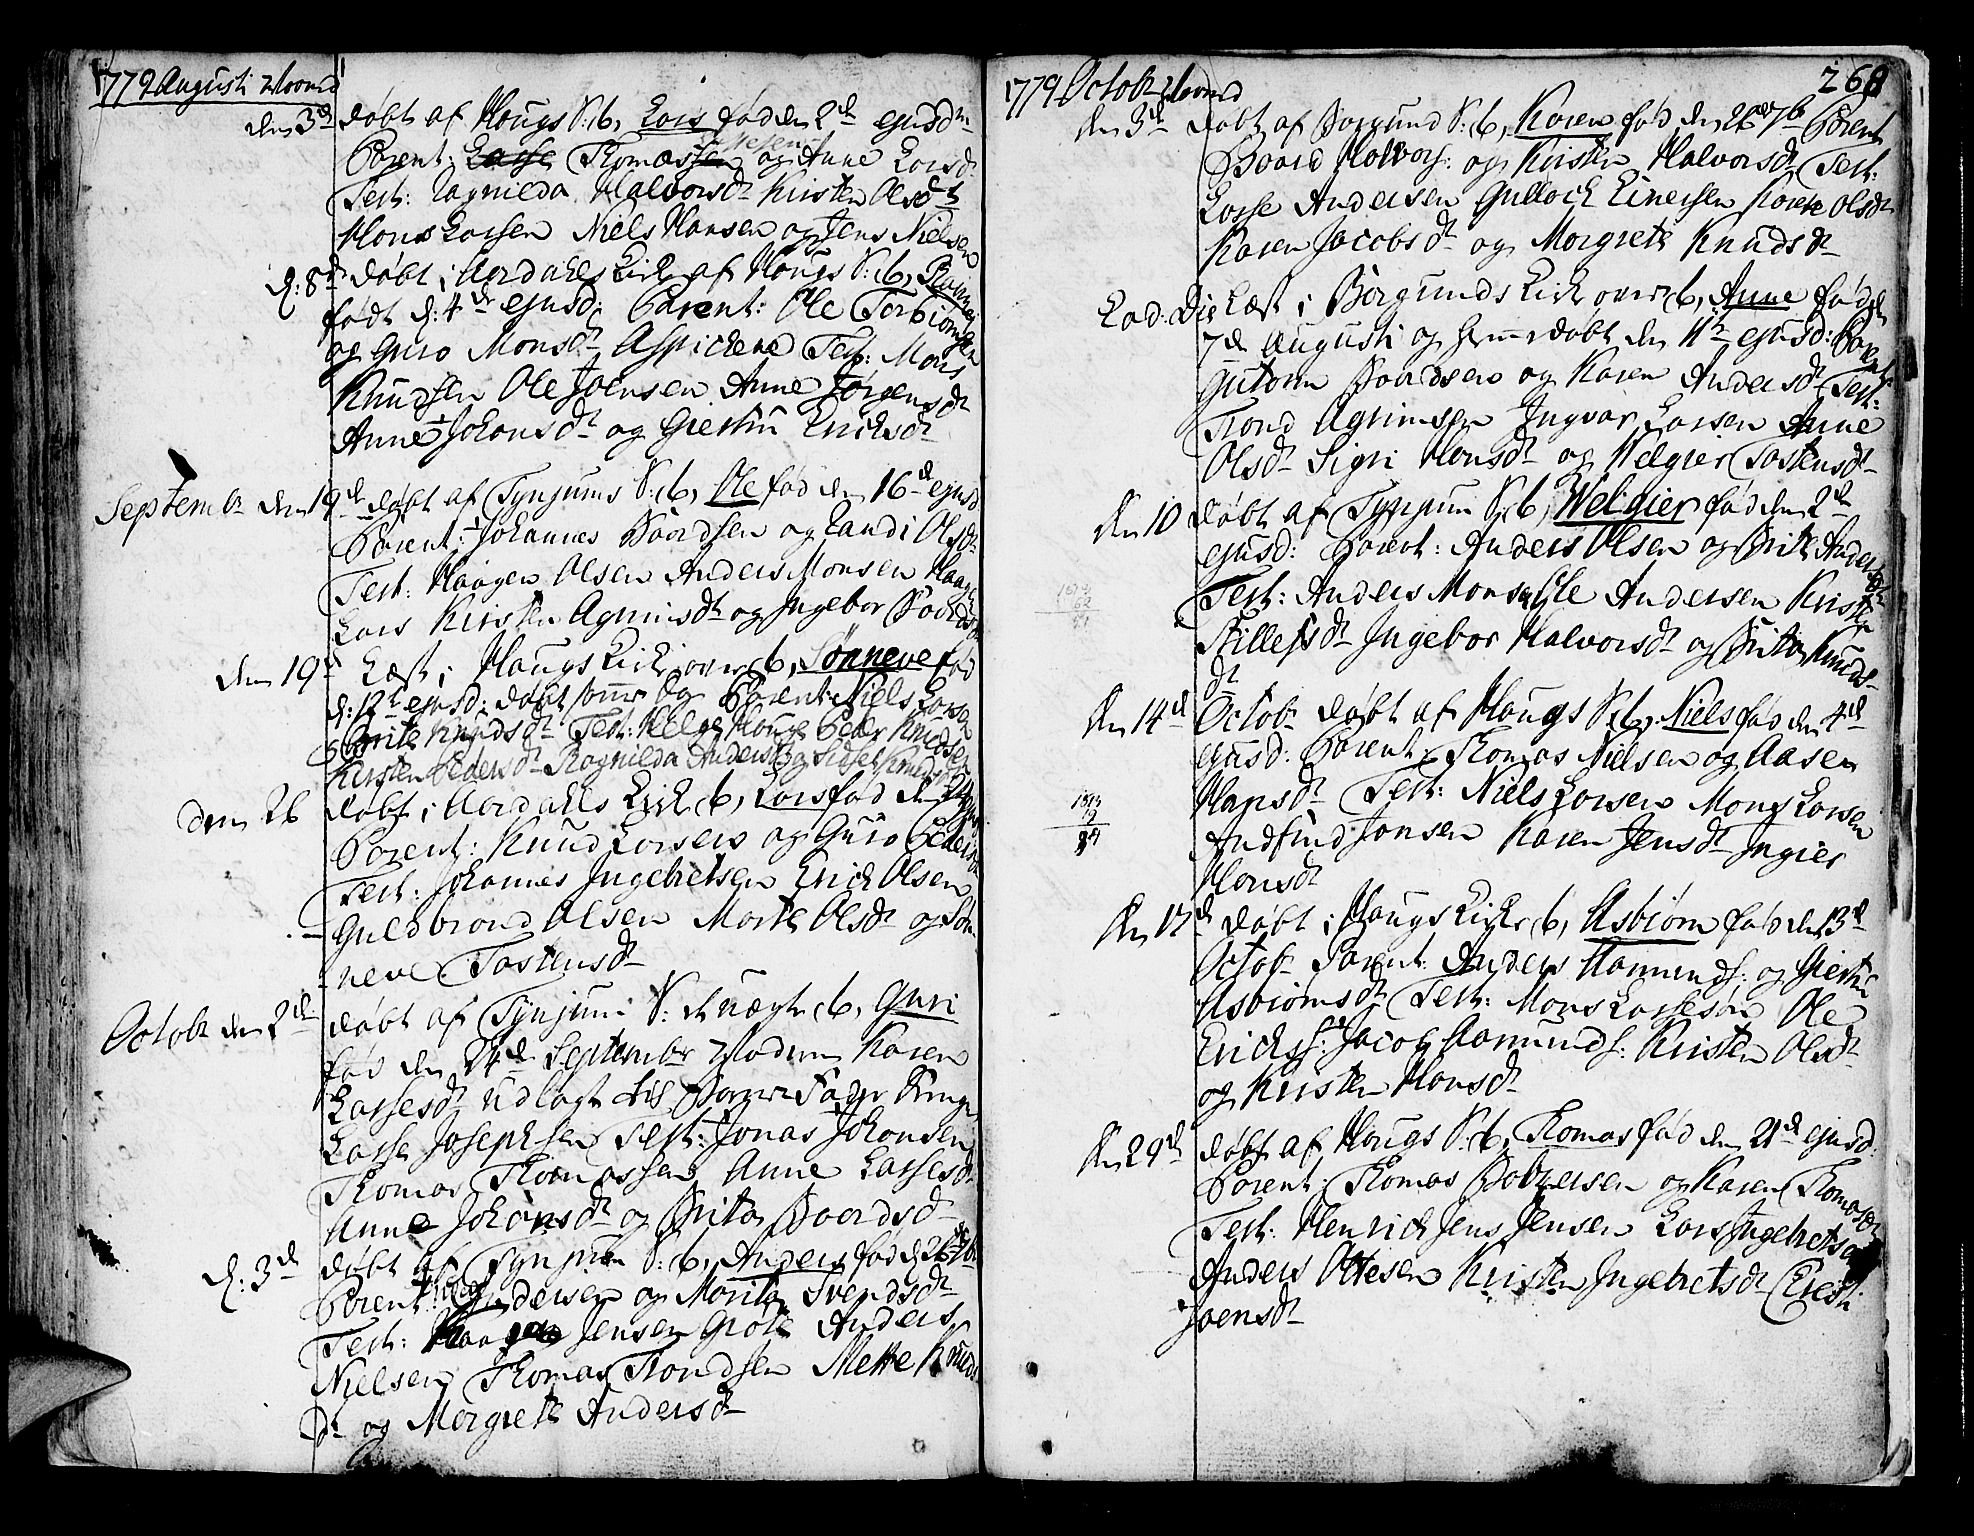 1779 Augusti Moned
den 3d døbt af Hougs S: b, Lars fød den 2d ejusdm:
Parent: Lasse Thomassen og Anne Larsd
Test: Ragnilda Halvorsdt Kirsten Olsdt
Mons Larsen Niels Hansen og Jens Nielsen
d: 8d døbt i Aardahls Kirk af Hougs S: b,
født d: 4de ejusd: Parent: Ole Torbiørnsen
og Guro Monsdt Test: Mons
Knudsen Ole Joensen Anne Jørgensdt
Anne Johansdt og Giertru Ericksdt
Septembr den 19de døbt af Tynjums S: b, Ole fød den 16de ejusd
Parent: Johannes Baardsen og Randi Olsdt
Test: Haagen Olsen Anders Monsen Haagen
Lars Kirsten Agrimsdt og Ingebor Baardsdt
den 19d Læst i Hougs Kirk over b, Sønneve fød
d: 12t ejusd: døbt samme Dag Parent: Niels Larsen
Brite Knudsdt Test: Helge Houge Peder Knudsen
Kirsten Pedersdt Ragnilda Andersdt og Sidsel Knudsdt
den 26 døbt i Aardahls Kirk b, Lars fød den
Parent: Knud Larsen og Guro Pedersdt
Test: Johannes Ingebretsen Erick Olsen
Guldbrand Olsen Marte Olsdt og Søn-
neve Tostensdt
Octobr den 2de døbt af Tynjum S: b, Guri
fød den 24de Septembr Moderen Karen
Lassesdt Udlagt til Barne Fader
Lasse Josephsen Test: Jonas Johansen
Thomas Thomassen Anne Lassesdt
Anne Johansdt og Brita Baardsdt
d: 3de døbt af Tynjum S: b, Anders fød d: 26de 7b
Parent: Andersen og Marita Svendsdt
Test: Jensen Grote Anders
Nielsen Thomas Trondsen Mette Knuds
dt og Margrete Andersdt
1779 Octobr Moned 268
den 3de døbt af Borgund S: b, Karen fød den 26de 7b Parent
Baard Halvors: og Kirsten Halvorsdt Test:
Lasse Andersen Gullack Einersen Karen Olsdt
Karen Jacobsdt og Margrete Knudsdt
Eod: Die Læst i Borgunds Kirk over b, Anne fød d
7de Augusti og hjemmedøbt den 11te ejusd: Parent:
Gutorm Baardsen og Karen Andersdt Test:
Trond Agrimsen Ingvar Larsen Anne
Olsdt Sigri Hansdt og Velgier Tostensdt
den 10 døbt af Tynjum S: b, Welgier fød den 2d
ejusd: Parent: Anders Olsen og Brite Andersdt
Test: Anders Monsen Ole Andersen Kirsten
Stillefsdt Ingebor Halvorsdt og Brita Knuds-
dt
den 14d Octob: døbt af Hougs S: b, Niels fød den 4d
ejusd: Parent: Thomas Nielsen og Aasen
Hansdt Test: Niels Larsen Mons Larsen
Andfind Jonsen Karen Jensdt Ingier
Hansdt
den 17d døbt i Hougs Kirk b, Asbiørn fød den 13d
Octob: Parent: Anders Hamunds: og Giertru
Asbiørnsdt Test: Mons Lassesøn Ole
Ericks: Jacob Aamunds: Kirsten Olsdt
og Kirsten Hansdt
den 29d døbt af Hougs S: b, Thomas fød den 21de ejusd:
Parent: Thomas Baltzersen og Karen Thomasdt
Test: Henrick Jens Jensen Lars Ingebretsen
Anders Ottesen Kirsten Ingebretsdt
Joensdt